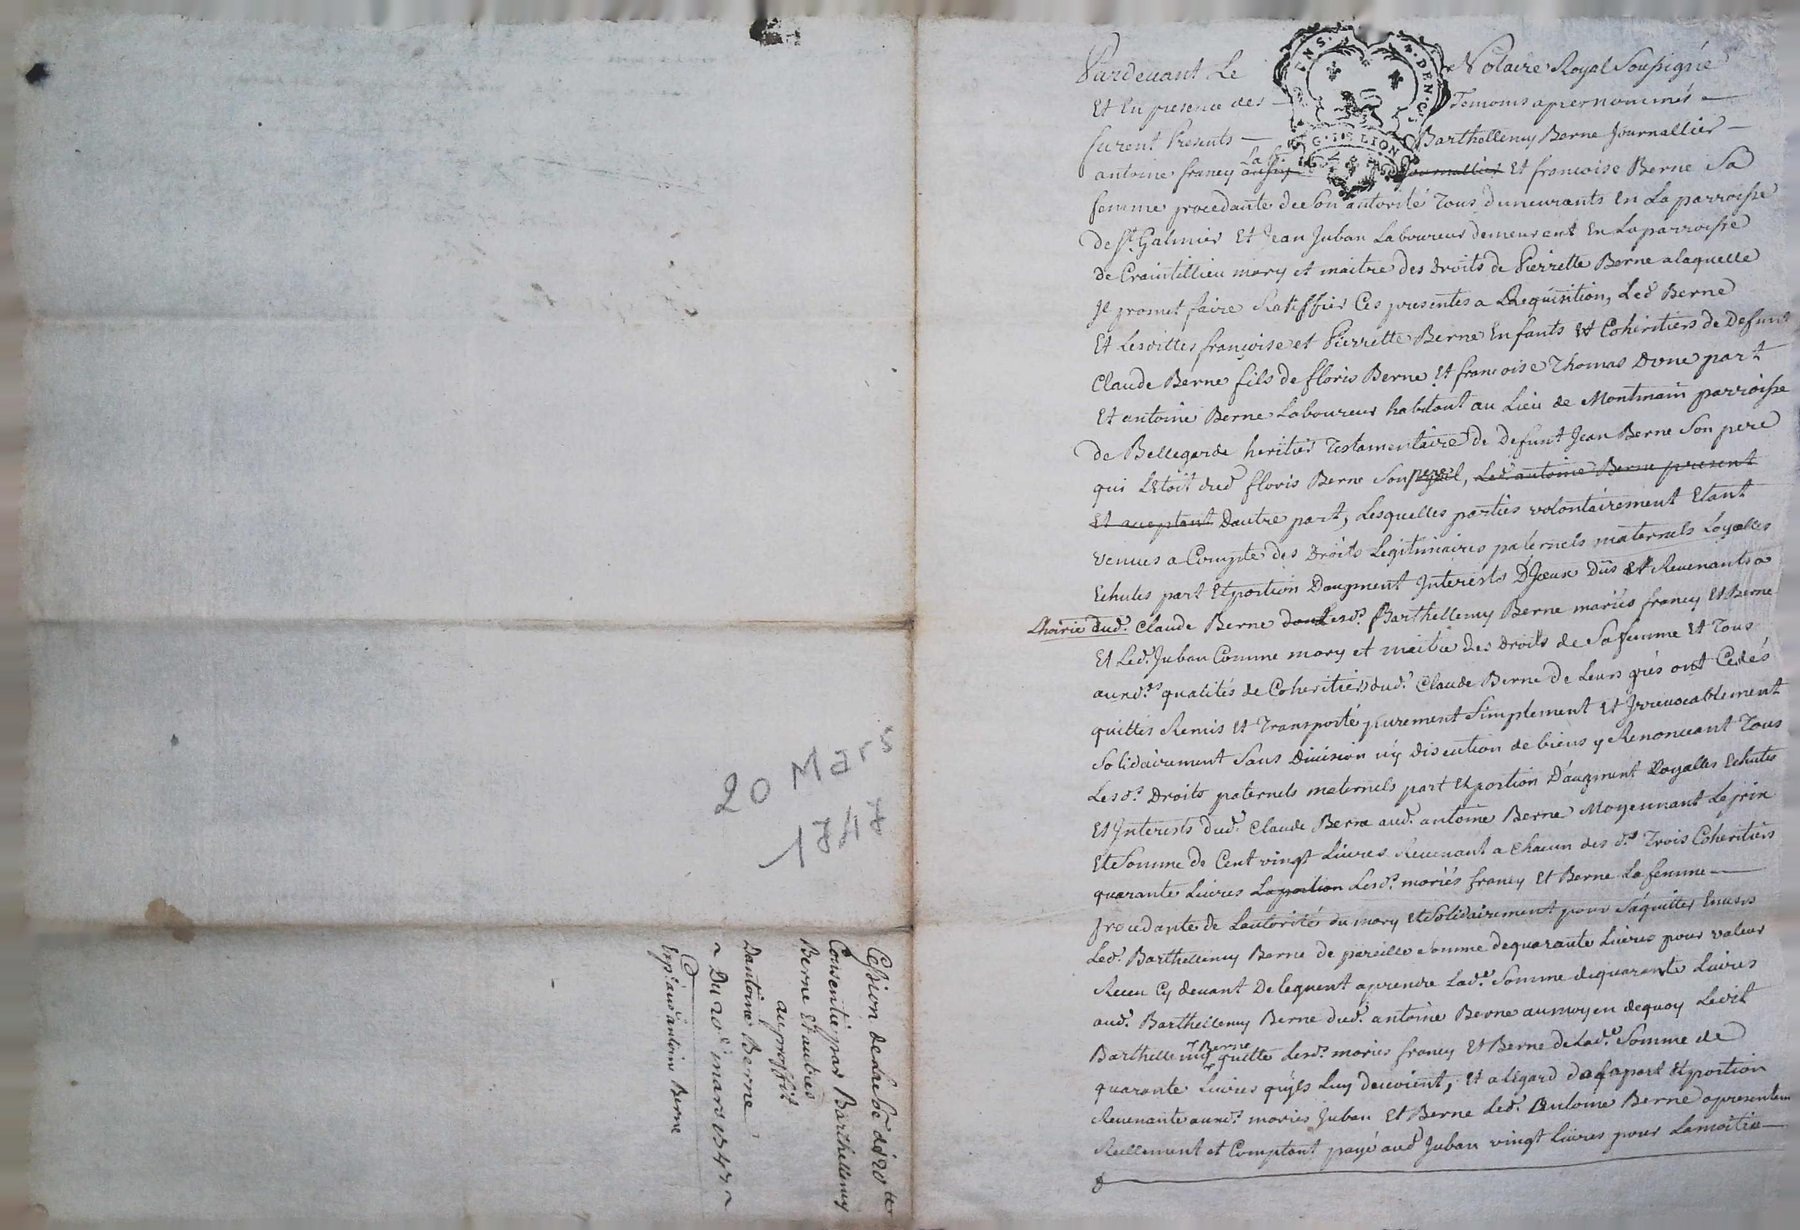 20 Mars
1747
Cession de la so.e de 120 tt
Consentie par Barthellemy
Berne Et autres
au proffit
Dantoine Berne
Du 20e mars 1747
Exp. aud. antoine Berne
GEN. DE LION
Pardevant Le Notaire Royal Soussigné
Et En presence des Temoins apres nommés
furent Presents Barthellemy Berne Journallier
antoine francy journallier Et francoise Berne Sa
femme procedante de son autorité Tous demeurants En La parroisse
de St. Galmier Et Jean Juban Laboureur demeurant En La parroisse
de Craintillieu mary et maitre des droits de Pierrette Berne a laquelle
Il promet faire Ratiffier Ces presentes a Requisition, Led. Berne
Et Lesdittes francoise et Pierrette Berne Enfants Et Coheritiers de Defunt
Claude Berne fils de floris Berne Et francoise Thomas Dune part
Et antoine Berne Laboureur habitant au Lieu de Montmain parroisse
de Bellegarde heritier Testamentaire de defunt Jean Berne Son pere
qui Letoit dud. floris Berne Son ayeul, Led. antoine Berne present
Et aceptant Dautre part, Lesquelles parties volontairement Etant
venues a Compte des Droits Legitimaires paternels maternels Loyalles
Echutes part Et portion Daugment Interests D'Iceux dûs et Revenants a
Lhoirie dud. Claude Berne Lesd. Barthellemy Berne mariés francy Et Berne
Et Led. Juban Comme mary et maitre des droits de Sa femme Et Tous
auxd. qualités de Coheritiers dud. Claude Berne de Leurs grés ont Cedés
quittés Remis Et Transporté purement Simplement Et Irrevocablement
Solidairement Sans Division ny discution de biens y Renonceant Tous
Lesd. Droits paternels maternels part Et portion D'augment Loyalles Echutes
Et Interests dud. Claude Berne aud. antoine Berne Moyennant Le prix
Et Somme de Cent vingt Livres Revenant a Chacun des d. Trois Coheritiers
quarante Livres La portion Lesd. mariés francy Et Berne La femme
procedante de Lautorité du mary Et Solidairement pour Saquitter Envers
Led. Barthellemy Berne de pareille Somme de quarante Livres pour valeur
Receu Cy devant Deleguent a prendre Lad. Somme de quarante Livres
aud. Barthellemy Berne dud. antoine Berne au moyen dequoy Ledit
Barthellemy Berne quitte Lesd. mariés francy Et Berne de Lad. Somme de
quarante Livres quils Luy devoient, Et a légard de sa part Et portion
Revenante auxd. mariés Juban Et Berne Led. Antoine Berne a presentem.
Reellement et Comptant payé aud. Juban vingt Livres pour La moitié